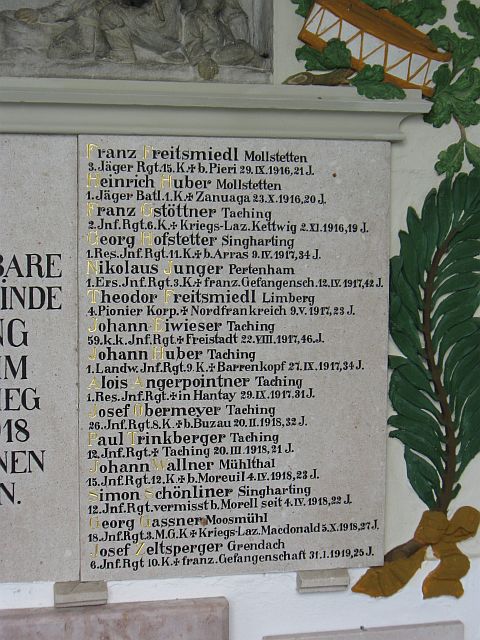 BARE
INDE
NG
IM
IEG
918
NEN
N.
Franz Freitsmiedl Mollstetten
3.Jäger Rgt.15.K.✠b.Pieri 29.IX.1916,21 J.
Heinrich Huber Mollstetten
1.Jäger Batl.1.K.✠Zanuaga 23.X.1916,20 J.
Franz Gstöttner Taching
2.Jnf.Rgt.6.K.✠Kriegs-Laz.Kettwig 2.XI.1916,19 J.
Georg Hofstetter Singharting
1.Res.Jnf.Rgt.11.K.✠b.Arras 9.IV.1917,34 J.
Nikolaus Junger Pertenham
1.Ers.Jnf.Rgt.3.K.✠franz.Gefangensch.12.IV.1917,42 J.
Theodor Freitsmiedl Limberg
4.Pionier Korp.✠Nordfrankreich 9.V.1917,23 J.
Johann Eiwieser Taching
59.k.k.Jnf.Rgt.✠Freistadt 22.VIII.1917,46.J.
Johann Huber Taching
1.Landw.Jnf.Rgt.9.K.✠Barrenkopf 27.IX.1917,34 J.
Alois Angerpointner Taching
1.Res.Jnf.Rgt.✠in Hantay 29.IX.1917.31 J.
Josef Obermeyer Taching
26.Jnf.Rgt.8.K.✠b.Buzau 20.II.1918,32 J.
Paul Trinkberger Taching
12.Jnf.Rgt.✠Taching 20.III.1918,21 J.
Johann Wallner Mühlthal
15.Jnf.Rgt.12.K.✠b.Moreuil 4.IV.1918,23 J.
Simon Schönliner Singharting
12.Jnf.Rgt.vermisst b.Morell seit 4.IV.1918,22 J.
Georg Gassner Moosmühl
18.Jnf.Rgt.3.M.G.K.✠Kriegs-Laz.Macdonald 5.X.1918,27 J.
Josef Zeltsperger Grendach
6.Jnf.Rgt 10.K.✠franz.Gefangenschaft 31.1.1919,25 J.